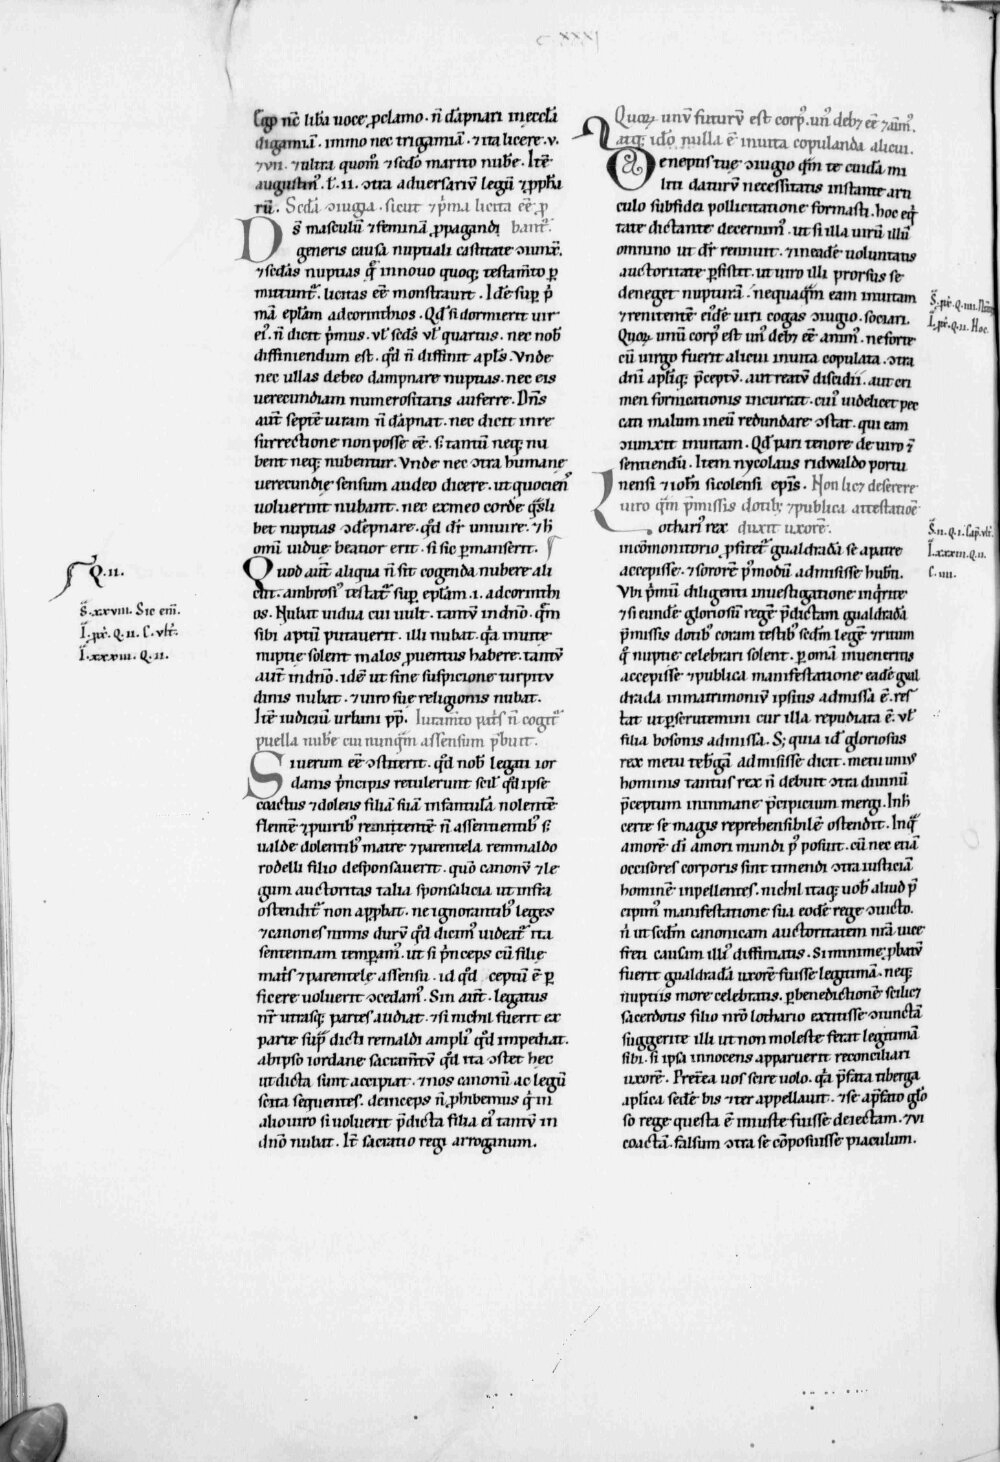 c xxxi
Ego nc̄ liƀa uoce ꝓclamo. n̄ dāpnari in eccl̄a
digamiā. immo nec trigamiā. ⁊ ita licere. v.
⁊ vii. ⁊ ultra quom̄ ⁊ sc̄do marito nubere. Itē
augustin᷒. l. ii. ɔtra adversariū legū ⁊ ꝓph̄a
rū. Sc̄da ɔiugia. sicut ⁊ p̄ma licita eē. ꝓ
bantᷣ.
D s̄ masculū ⁊ feminā ꝓpagandi
generis causa nuptiali castitate ɔiunx̄.
⁊ sc̄das nuptias q̄ in nouo quoq; testam̄to ꝑ
mittuntᷣ. licitas eē monstraurt. Idē suꝑ p̄
mā eplam ad corinthios. Qd̄ si dormierit uir
ei᷒. n̄ dicit p̄mus. ul̄ sc̄ds ul̄ quartus. nec nob̄
diffiniendum est. qd̄ n̄ diffinit apl̄s. Vnde
nec ullas debeo dampnare nuptias. nec eis
uerecundiam numerositatis auferre. Dn̄s
aut̄ septē uiram n̄ dāpnat. nec dicit in re
surrectione non posse eē. s; tantū neq; nu
bent neq; nubentur. Vnde nec ɔtra humanę
uerecundię sensum audeo dicere. ut quociens
uoluerint nubant. nec ex meo corde q̄sli
bet nuptias ɔdēpnare. qd̄ dr̄ uniuire. ⁊ h̄
omī uiduę beatior erit. si sic ꝑmanserit.
Quod aut̄ aliqua n̄ sit cogenda nubere ali
cui. ambrosi᷒ testatᷣ suꝑ eplam. i. ad corinthi
os. Nubat uidua cui uult. tantū in dn̄o. qm̄
sibi aptū putauerit. illi nubat. qa inuitę
nuptię solent malos ꝓuentus habere. tantū
aut̄ in dn̄o. id ē ut sine suspicione turpitu
dinis nubat. ⁊ uiro suę religionis nubat.
Itē iudiciū urbani pp̄. Iuram̄to pat̄s n̄ cogitᷣ
puella nub̄e cui nunq̄m assensum p̄buit.
Si uerum eē ɔstiterit. qd̄ nob̄ legati ior
danis p̄ncipis retulerunt scil̄ qd̄ ipse
coactus ⁊ dolens filiā suā infantulā nolentē
flentē ⁊ ꝓ uirib᷒ renitentē n̄ assentientib᷒ s;
ualde dolentib᷒ matre ⁊ parentela remmaldo
rodelli filio desponsauerit. quō canonū ⁊ le
gum auctoritas talia sponsalicia ut infra
ostenditᷣ non apꝓbat. ne ignorantib᷒ leges
⁊ canones nimis durū qd̄ dicim᷒ uideatᷣ ita
sententiam temꝑam᷒. ut si p̄nceps cū filię
mat̄s ⁊ parentelę assensu. id qd̄ ceptū ē ꝑ
ficere uoluerit ɔcedam᷒. Sin aut̄. legatus
nr̄ utrasq; partes audiat. ⁊ si nichil fuerit ex
parte sup̄dicti remaldi ampli᷒ qd̄ impediat.
ab ipso iordane sacram̄tū qd̄ ita ɔstet hęc
ut dicta sunt accipiat. ⁊ nos canonū ac legū
scita sequentes. deinceps n̄ ꝓhibemus qn̄
alio uiro si uoluerit p̄dicta filia ei᷒ tantū in
dn̄o nubat. Itē sacratio regi arroganum.
Q. ii.
S̄. xxviii. Sic em̄.
I. pr̄. Q. ii. C. ult̄.
I. xxxiii. Q. ii.
Quoꝝ unū futurū est corp᷒. un᷒ deb; eē ⁊ anim᷒.
atq; ido nulla ē inuita copulanda alicui.
De neptis tuę ɔiugio qm̄ te cuidā mi
liti daturū necessitatis instante arti
culo sub fidei pollicitatione formasti. hoc eq̄
tate dictante decernim᷒. ut si illa uirū illū
omnino ut dr̄ rennuit. ⁊ in eadē uoluntatis
auctoritate ꝑsistit. ut uiro illi prorsus se
deneget nupturā. nequaq̄m eam inuitam
⁊ renitentē ei᷒dē uiri cogas ɔiugio. sociari.
Quoꝝ unū corp᷒ est un᷒ deb; eē anim᷒. ne forte
cū uirgo fuerit alicui inuita copulata. ɔtra
dn̄i apl̄iq; p̄ceptū. aut reatū discidii. aut cri
men fornicationis incurrat. cui᷒ uidelicet pec
cati malum in eū redundare ɔstat. qui eam
ɔiunxit inuitam. Qd̄ pari tenore de uiro ē
sentiendū. Item nycolaus ridwaldo portu
nensi ⁊ ioh̄i sicolensi ep̄is. Non licz deserere
uiro qm̄ p̄missis dotib᷒ ⁊ publica attestatione
duxit uxorē.
Lotharius rex
in cōmonitorio ꝓfitetᷣ gualdradā se a patre
accepisse. ⁊ sororē p̄ modū admisisse hub̄ti.
Vbi p̄mū diligenti inuestigatione inq̄rite
⁊ si eundē gloriosū regē p̄dictam gualdradā
p̄missis dotib᷒ coram testib᷒ sc̄dm legē ⁊ ritum
q̄ nuptię celebrari solent. ꝑ omā inueneritis
accepisse ⁊ publica manifestatione eadē gual
drada in matrimoniū ipsius admissa ē. res
tat ut ꝑscrutemini cur illa repudiata ē. ul̄
filia bosonis admissa. S; quia id̄ gloriosus
rex metu teb̄gā admisisse dicit. metu unius
hominis tantus rex n̄ debuit ɔtra diuinū
p̄ceptum in inmane p̄cipicium mergi. In h̄
certe se magis reprehensibilē ostendit. In q̄
amorē di amori mundi p̄posuit. cū nec etiā
occisores corporis sint timendi ɔtra iusticiā
hominē inpellentes. nichil itaq; uob̄ aliud p̄
cipim᷒ manifestatione sua eodē rege ɔuicto.
n̄ ut sc̄dm canonicam auctoritatem nr̄a uice
freti causam illi᷒ diffiniatis. Si minimę ꝓbatū
fuerit gualdradā uxorē fuisse legitimā. neq;
nuptiis more celebratis. ꝑ benedictionē scilicz
sacerdotis filio nr̄o lothario extitisse ɔiunctā
suggerite illi ut non moleste ferat legitimā
sibi. si ipsa innocens apparuerit reconciliari
uxorē. Pret̄ea uos scire uolo. qa p̄fata tiberga
aplicā sedē bis ⁊ ter appellauit. ⁊ se a p̄fato glo
so rege questa ē iniuste fuisse deiectam. ⁊ ui
coactā. falsum ɔtra se cōposuisse piaculum.
S̄. pr̄. Q. iiii.
I. pr̄. Q. ii. Hoc.
S̄. ii. Q. i. Cap. ult̄.
I. xxxiii. Q. ii.
C. iiii.